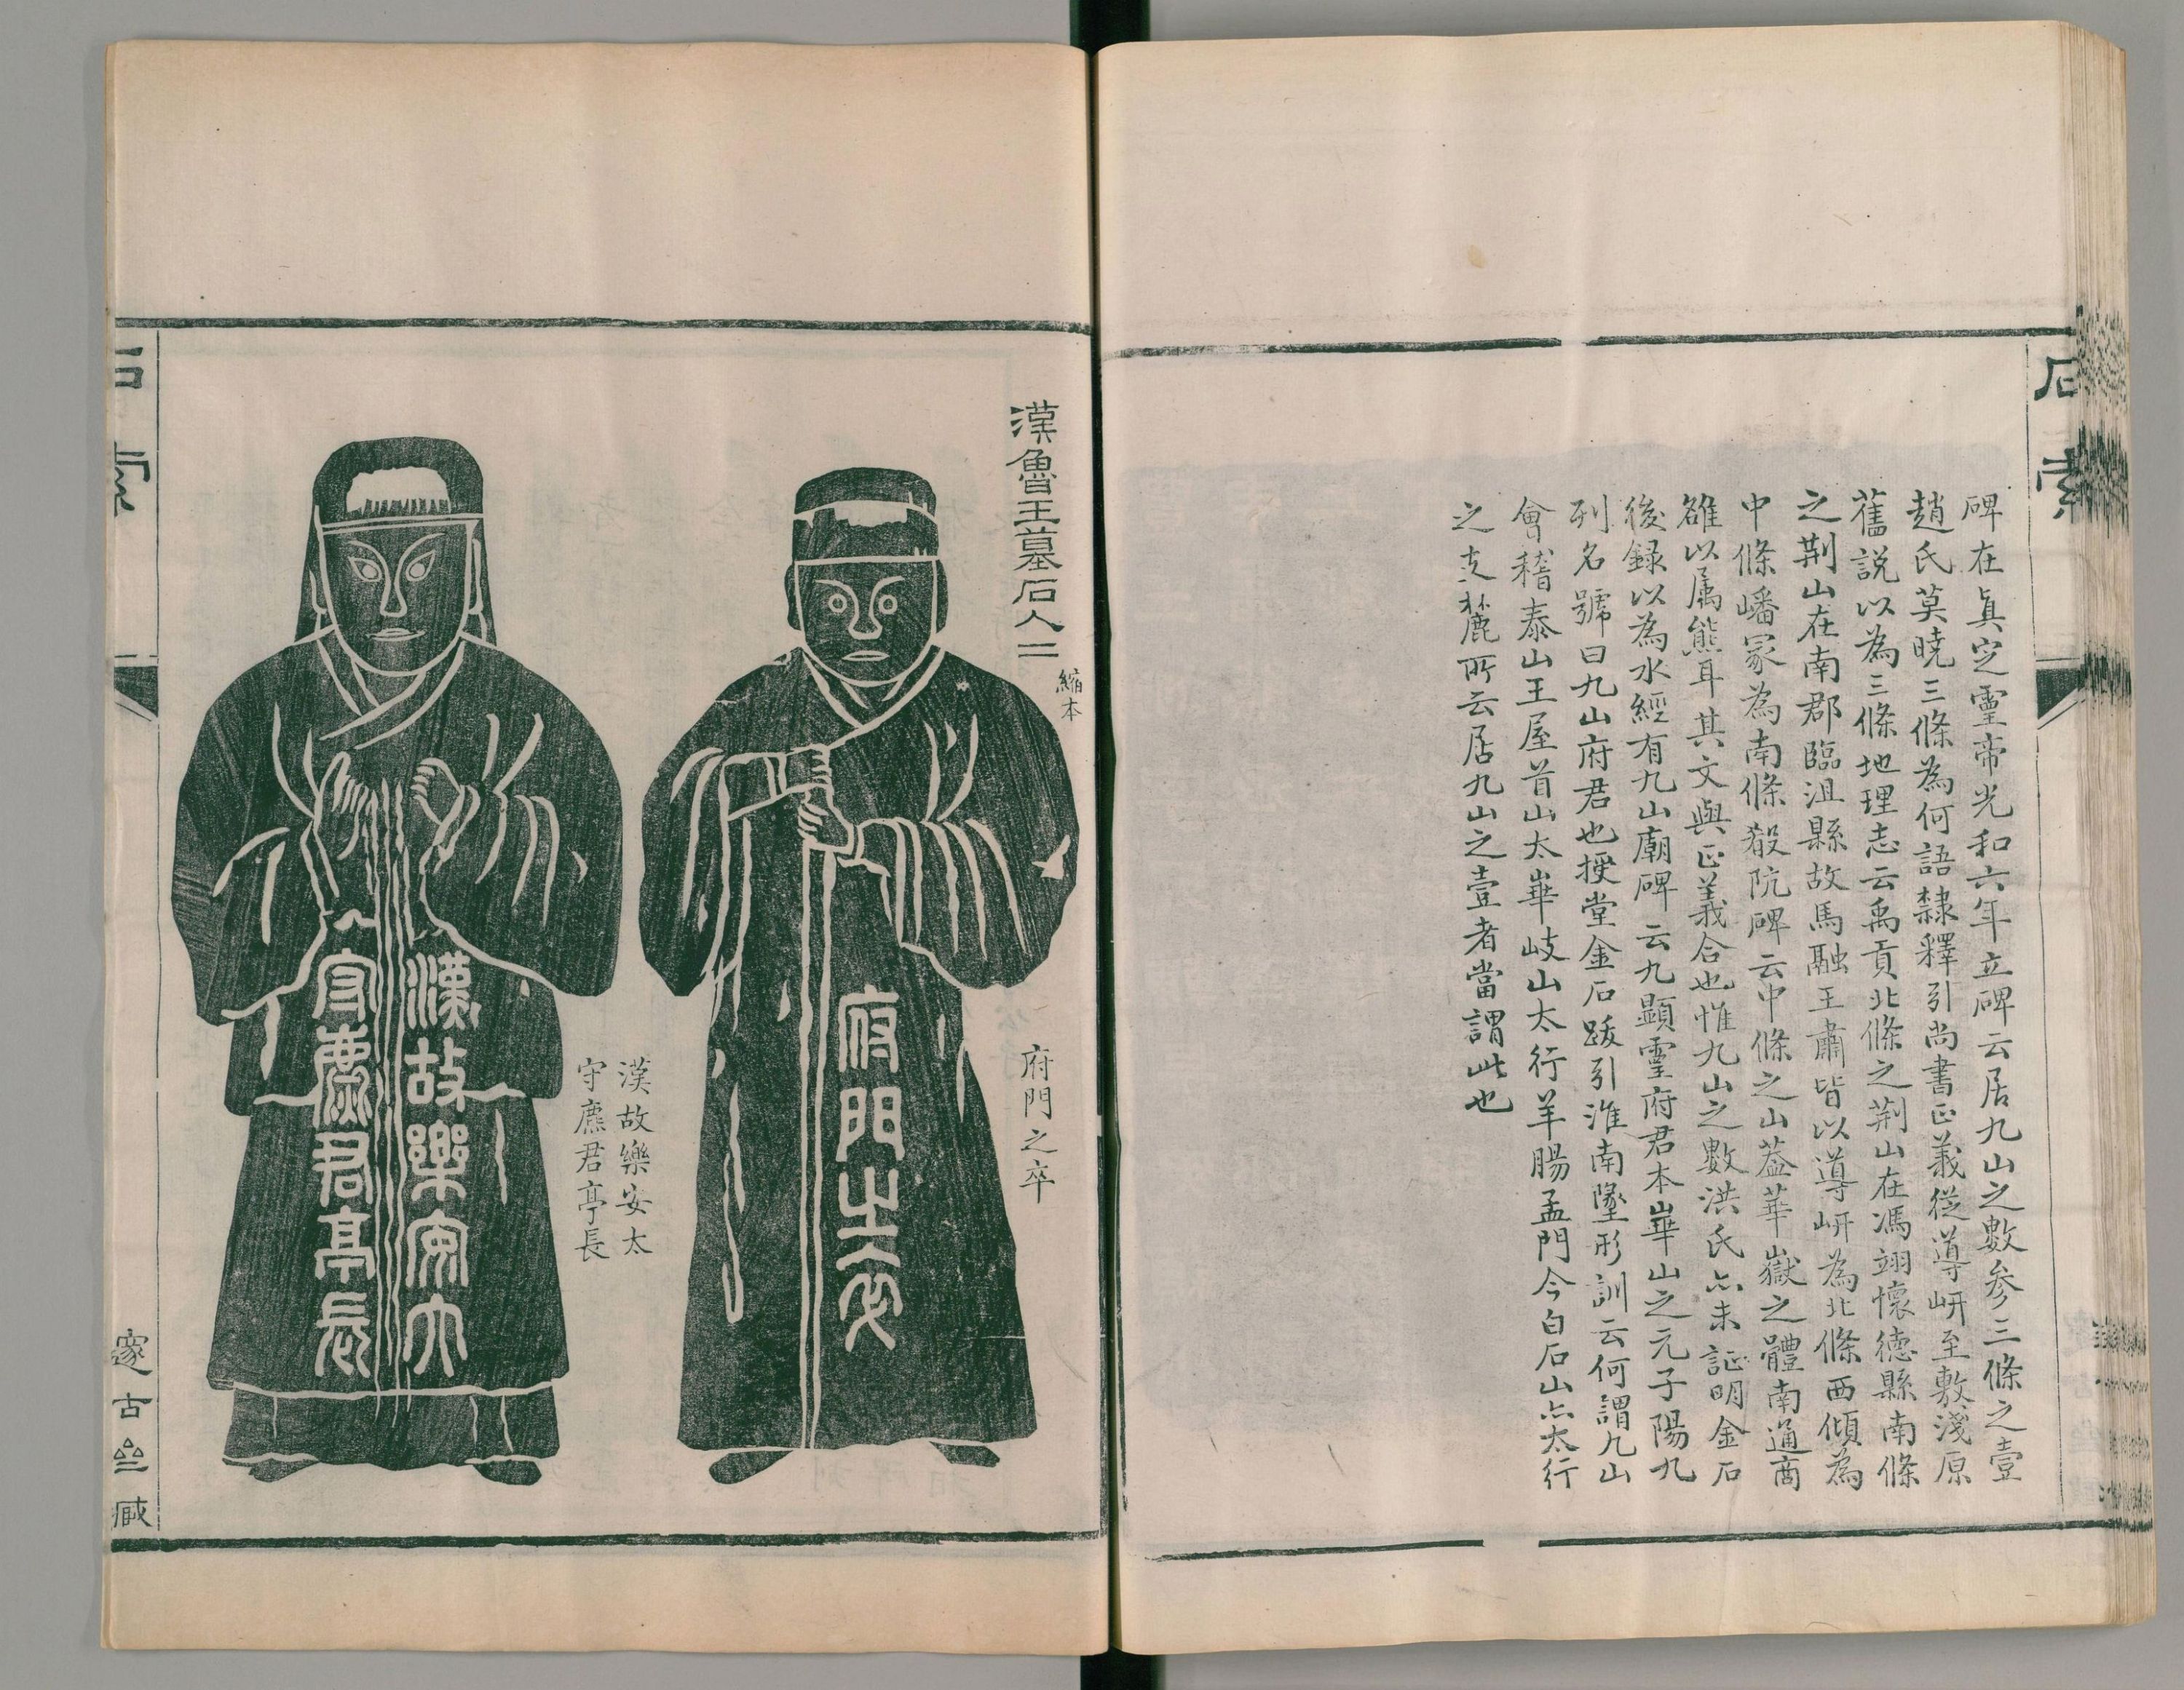 石索
碑在眞定靈帝光和六年立碑云居九山之數参三條之壹
趙氏莫曉三條為何語隸釋引尚書正義從導岍至敷淺原
舊説以為三條地理志云禹貢北條之荆山在馮翊懷德縣南條
之荆山在南郡臨沮縣故馬融王肅皆以導岍為北條西傾為
中條嶓冢為南條殽阬碑云中條之山葢華嶽之體南通商
雒以属熊耳其文與正義合也惟九山之數洪氏亦未証明金石
後録以為水經有九山廟碑云九顯靈府君本崋山之元子陽九
列名號曰九山府君也授堂金石跋引淮南墬形訓云何謂九山
會稽泰山王屋首山太崋岐山太行羊腸孟門今白石山亦太行
之支麓所云居九山之壹者當謂此也
漢魯王墓石人二
縮本
府門之卒
府門之卒
漢故樂安太
守麃君亭長
漢故樂安太
守麃君亭長
石索
邃古㕣臧